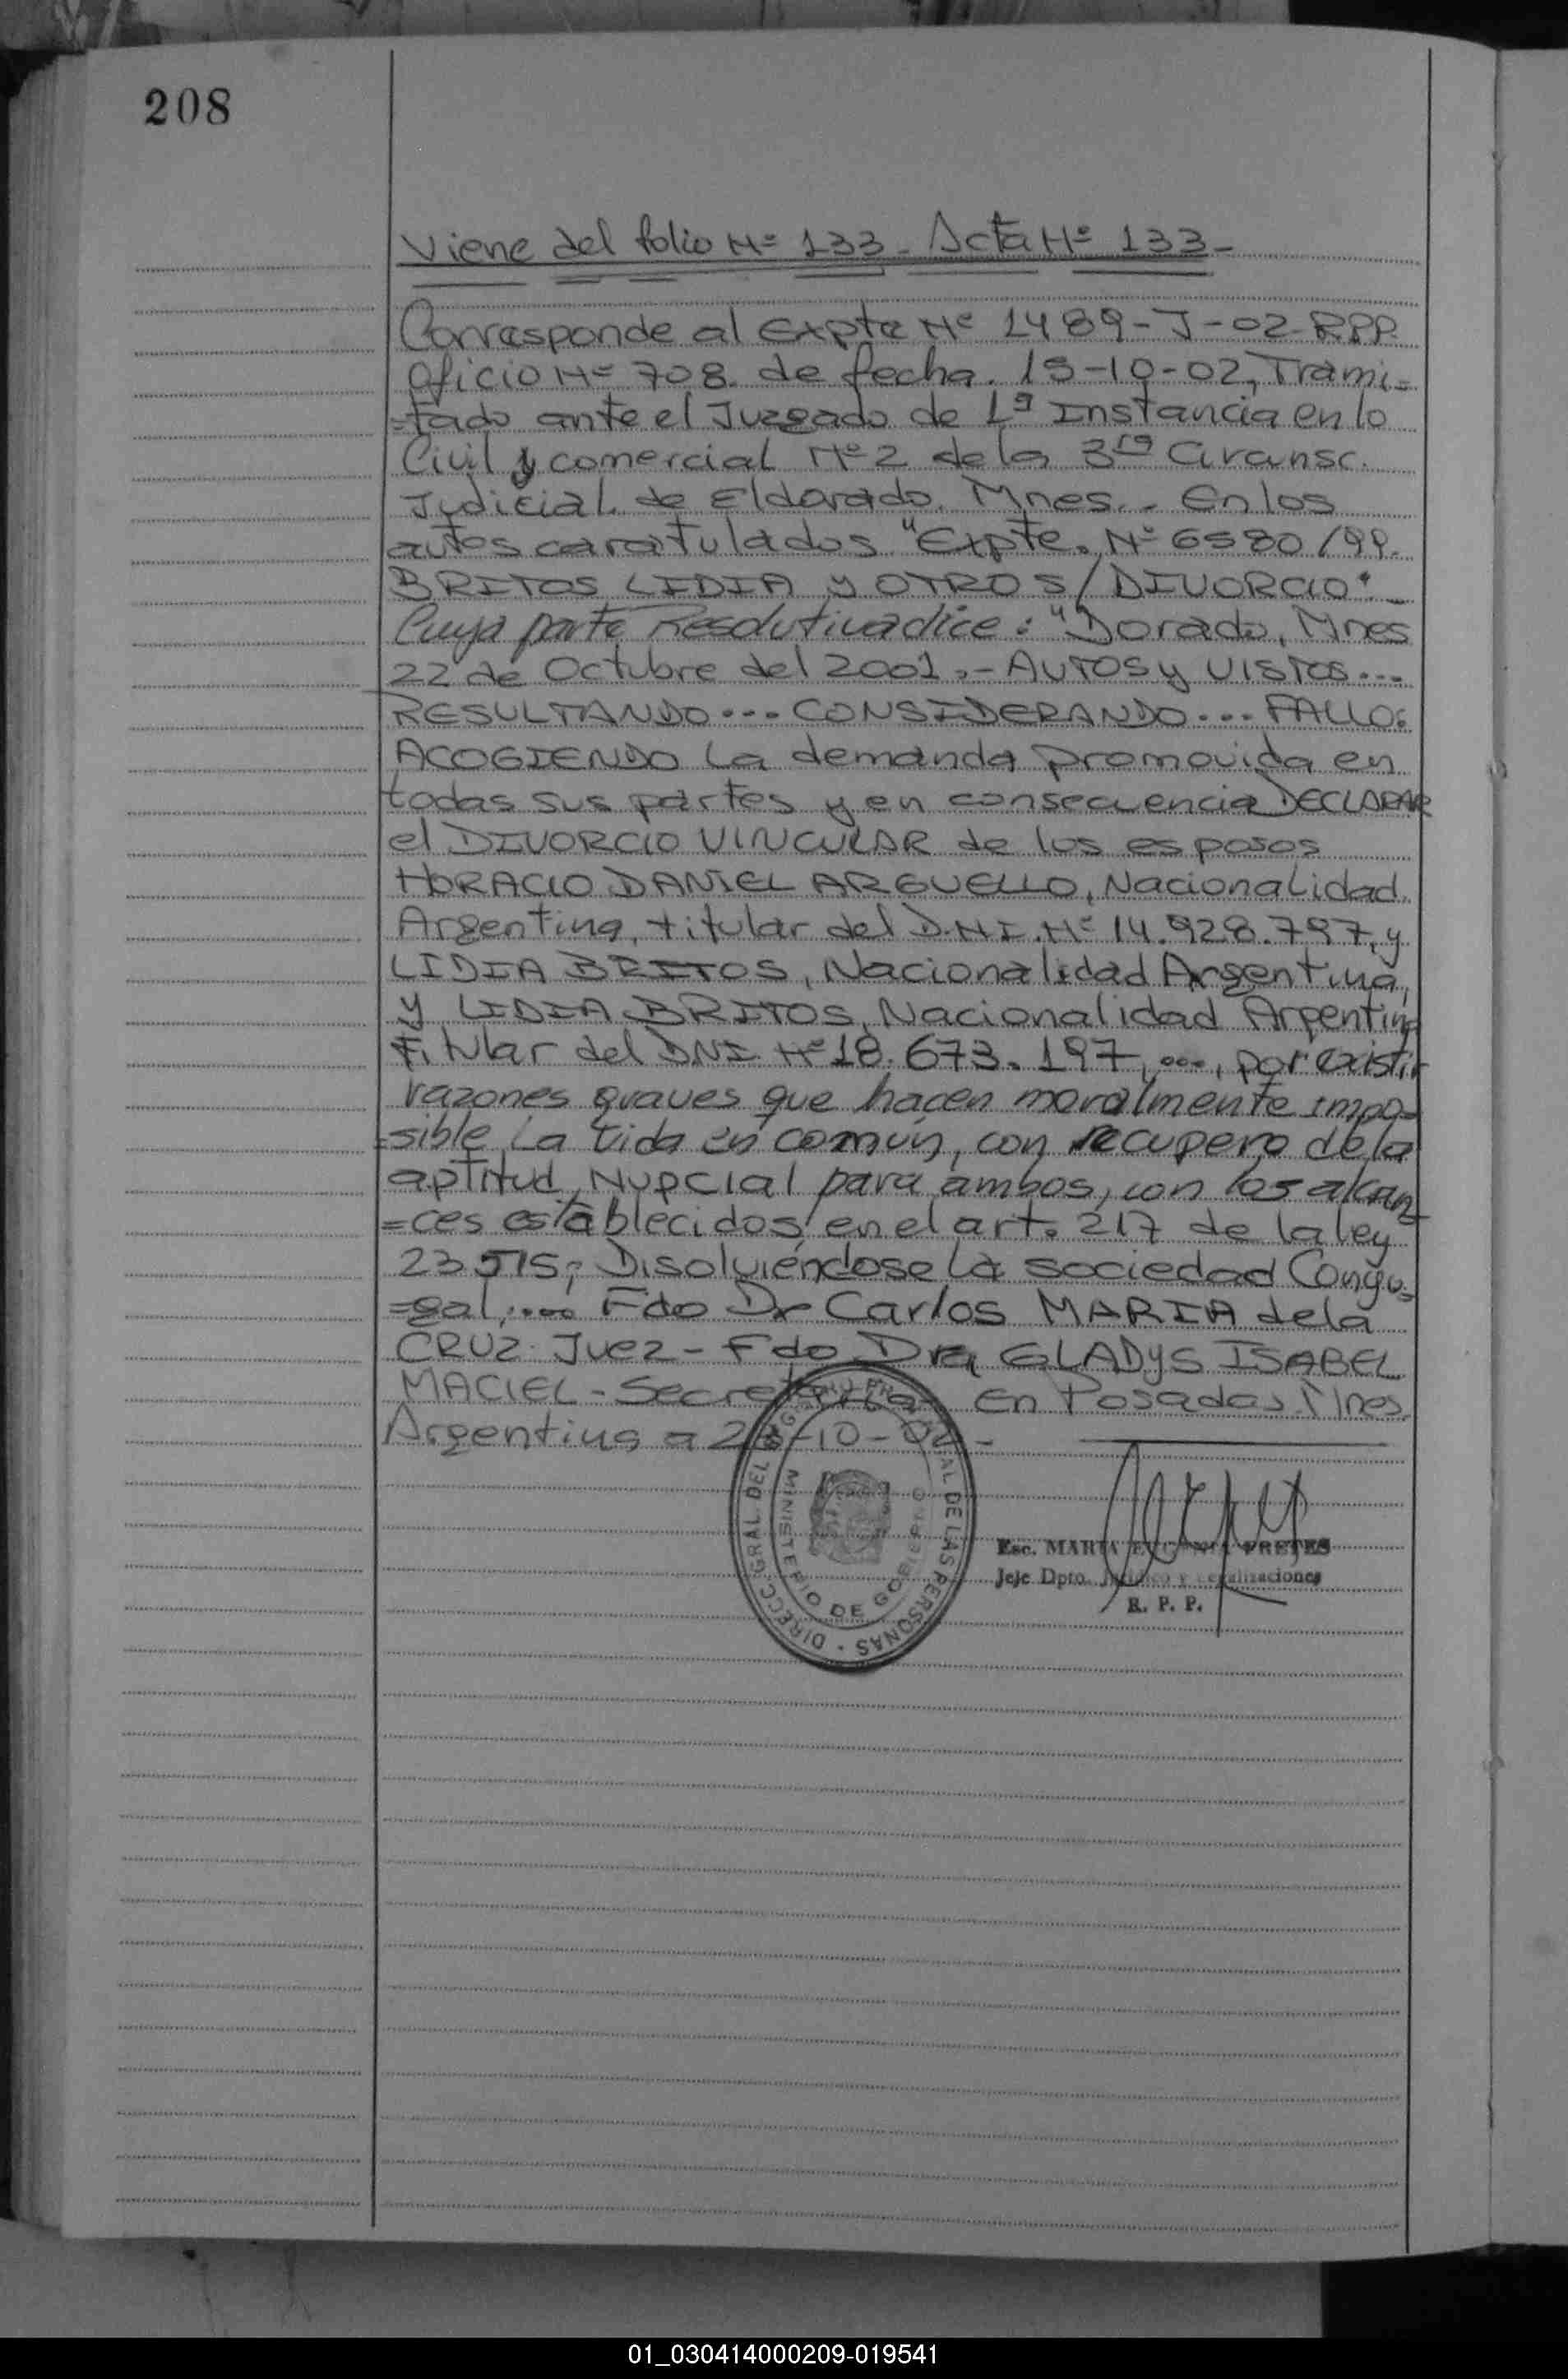 208
Viene del folio Nº 133 - Acta Nº 133 -
Corresponde al Expte Nº 1489-J-02-RPP.
Oficio Nº 708. de fecha. 15-10-02, Trami=
=tado ante el Juzgado de 1ª Instancia en lo
Civil y comercial Nº 2 de la 3ra Circunsc.
Judicial. de Eldorado. Mnes.. En los
autos caratulados "Expte. Nº 6580/99.
BRITOS LIDIA y OTRO S/DIVORCIO".-
Cuya parte Resolutiva dice: "Dorado, Mnes
22 de Octubre del 2001.- AUTOS y VISTOS...
RESULTANDO... CONSIDERANDO... FALLO:
ACOGIENDO La demanda promovida en
todas sus partes y en consecuencia DECLARAR
el DIVORCIO VINCULAR de los esposos
HORACIO DANIEL ARGUELLO, Nacionalidad.
Argentina, titular del D.N.I. Nº 14.928.797, y
LIDIA BRITOS, Nacionalidad Argentina,
y LIDIA BRITOS, Nacionalidad Argentina
Titular del DNI Nº 18.673.197, ..., por existir
razones graves que hacen moralmente impo=
=sible La vida en común, con recupero de la
aptitud Nupcial para ambos, con los alcan=
=ces establecidos en el art. 217 de la ley
23515; Disolviéndose La sociedad Conyu=
=gal,.... Fdo Dr Carlos MARIA de la
CRUZ. Juez - Fdo Dra GLADYS ISABEL
MACIEL - Secretaria En Posadas. Mnes.
Argentina a -10-02 -
DIRECC. GRAL. DEL AL DE LAS PERSONAS
MINISTERIO DE GOBIERNO
Esc. MARIA PRETES
Jefe Dpto. y Legalizaciones
R. P. P.
01_030414000209-019541